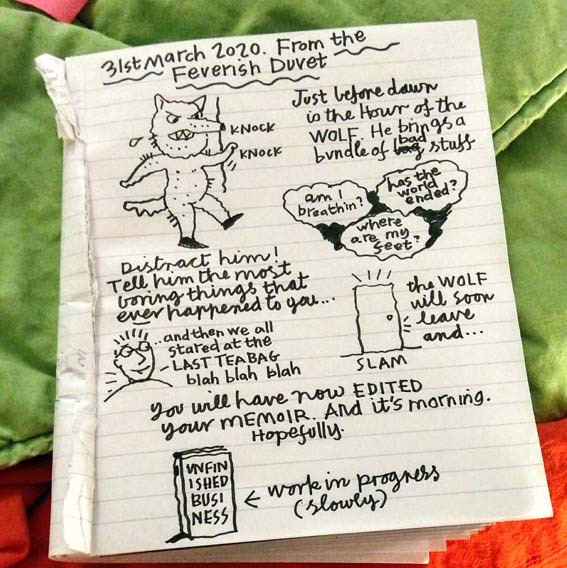 31st March 2020. From the
Feverish Duvet
KNOCK
KNOCK
Just before dawn
is the Hour of the
WOLF. He brings a
bundle of bad stuff
am I
breathin?
has the
world
ended?
where
are my
feet?
Distract him!
Tell him the most
boring things that
ever happened to you...
..and then we all
stared at the
LAST TEABAG
blah blah blah
SLAM
the WOLF
will soon
leave
and...
You will have now EDITED
your MEMOIR. And it's morning.
Hopefully.
UNFIN
ISHED
BUSI
NESS
← work in progress
(slowly)